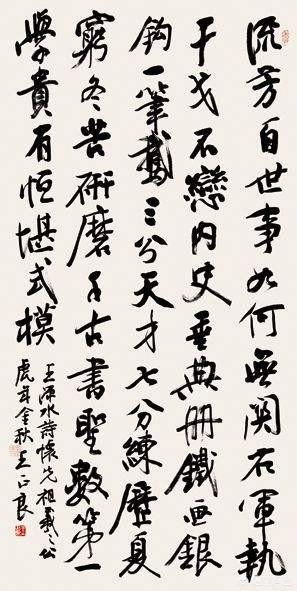 流芳百世事如何無關右軍執
干戈不戀內史垂典冊鐵画銀
鈎一筆鵞三分天才七分練歷夏
窮冬苦研磨千古書聖數第一
學貴有恒堪式模
王水詩懷先祖羲之公
虎年金秋王正良